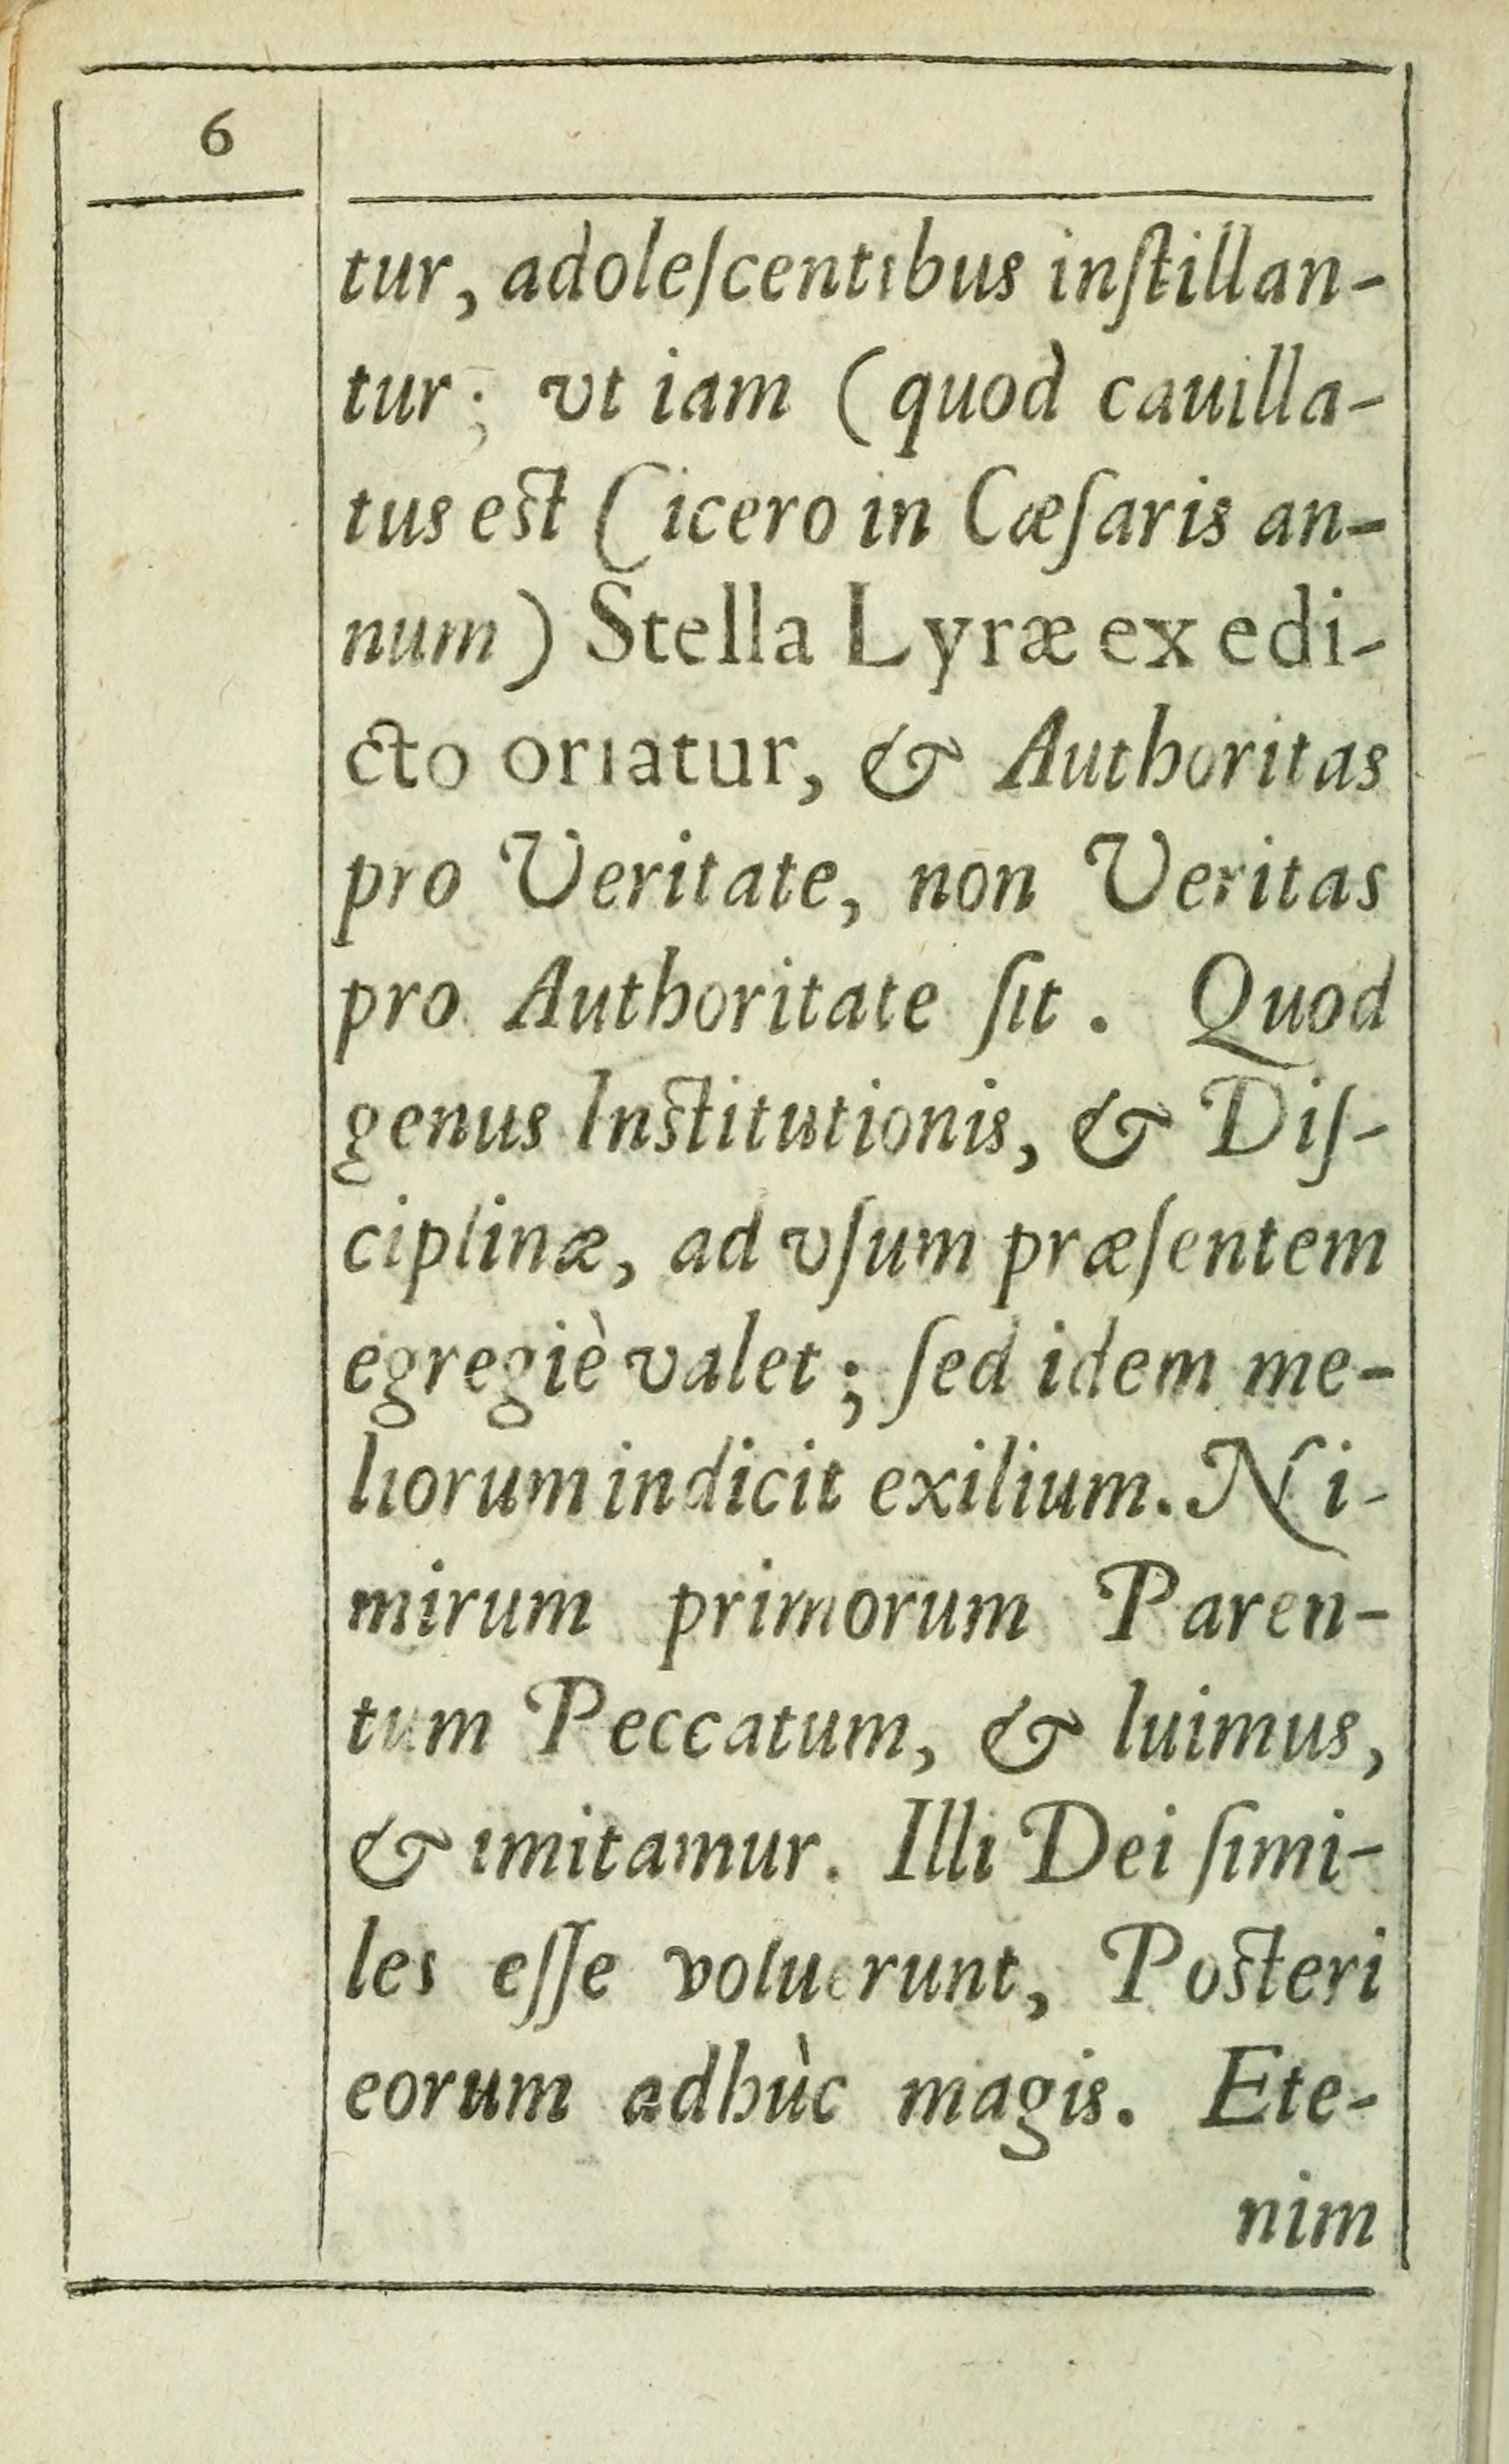 6
tur, adoleſcentibus inſtillan-
tur; vt iam (quod cauilla-
tus eſt Cicero in Cæſaris an-
num) Stella Lyræ ex edi-
cto oriatur, & Authoritas
pro Veritate, non Veritas
pro Authoritate ſit. Quod
genus Inſtitutionis, & Diſ-
ciplinæ, ad vſum præſentem
egregiè valet; ſed idem me-
liorum indicit exilium. Ni-
mirum primorum Paren-
tum Peccatum, & luimus,
& imitamur. Illi Dei ſimi-
les eſſe voluerunt, Poſteri
eorum adhùc magis. Ete-
nim